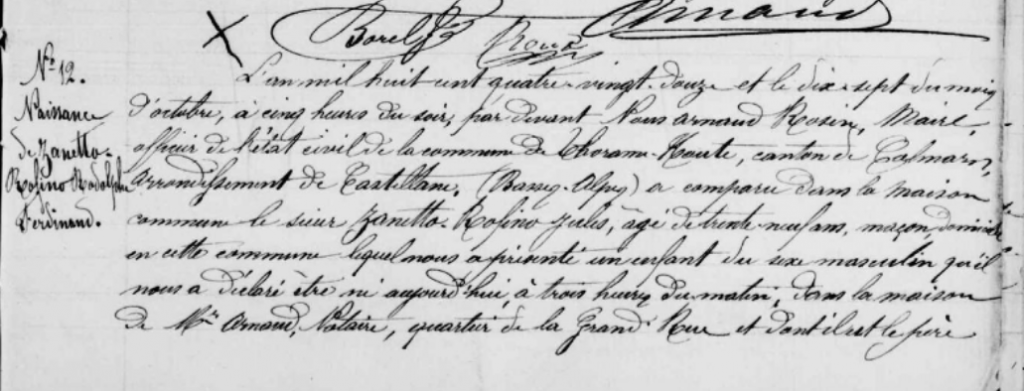 Borel Roux Arnaud
Nº 12.
Naissance
de Zanetto-
Rosino Rodolphe
Ferdinand.
L'an mil huit cent quatre-vingt-douze et le dix-sept du mois
d'octobre, à cinq heures du soir, par devant Nous Arnaud Rosin, Maire,
officier de l'état civil de la commune de Thorame-Haute, canton de Colmars,
arrondissement de Castellane, (Basses-Alpes) a comparu dans la maison
commune le sieur Zanetto-Rosino Jules, âgé de trente-neuf ans, maçon, domicilié
en cette commune lequel nous a présenté un enfant du sexe masculin qu'il
nous a déclaré être né aujourd'hui, à trois heures du matin, dans la maison
de Mtre Arnaud, Notaire, quartier de la Grand'Rue et dont il est le père